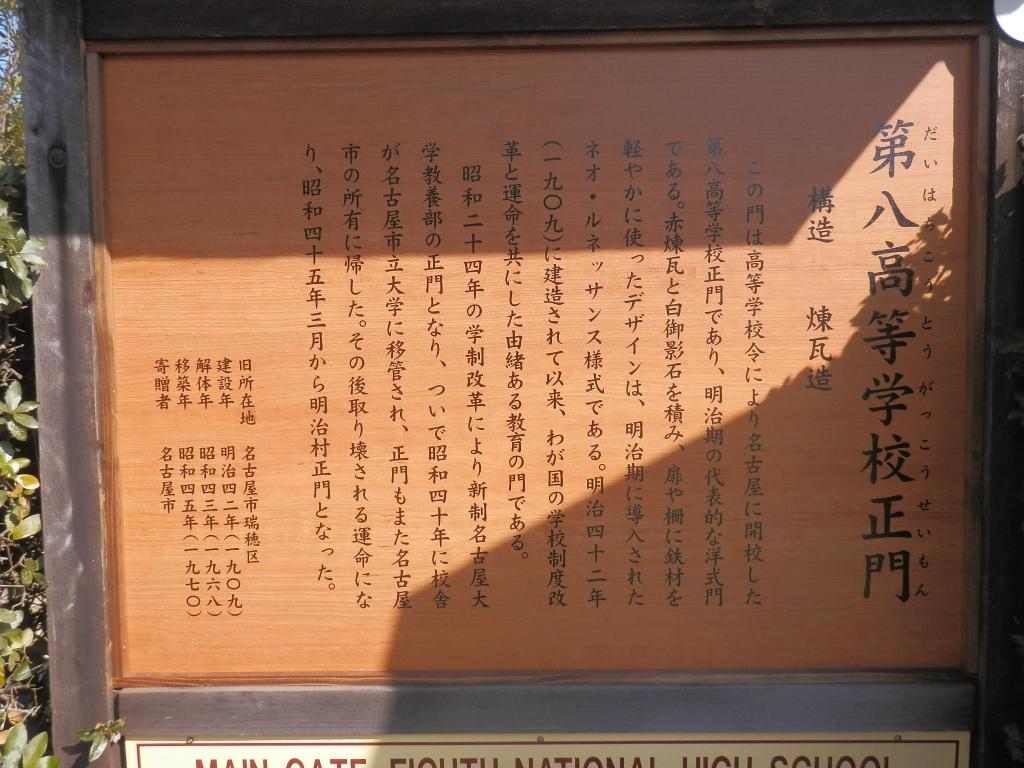 だいはちこうとうがっこうせいもん
第八高等学校正門
構造 煉瓦造
この門は高等学校令により名古屋に開校した
第八高等学校正門であり、明治期の代表的な洋式門
である。赤煉瓦と白御影石を積み、扉や柵に鉄材を
軽やかに使ったデザインは、明治期に導入された
ネオ・ルネッサンス様式である。明治四十二年
(一九〇九)に建造されて以来、わが国の学校制度改
革と運命を共にした由緒ある教育の門である。
昭和二十四年の学制改革により新制名古屋大
学教養部の正門となり、ついで昭和四十年に校舎
が名古屋市立大学に移管され、正門もまた名古屋
市の所有に帰した。その後取り壊される運命にな
り、昭和四十五年三月から明治村正門となった。
旧所在地 名古屋市瑞穂区
建設年 明治四二年(一九〇九)
解体年 昭和四三年(一九六八)
移築年 昭和四五年(一九七〇)
寄贈者 名古屋市
MAIN GATE, EIGHTH NATIONAL HIGH SCHOOL